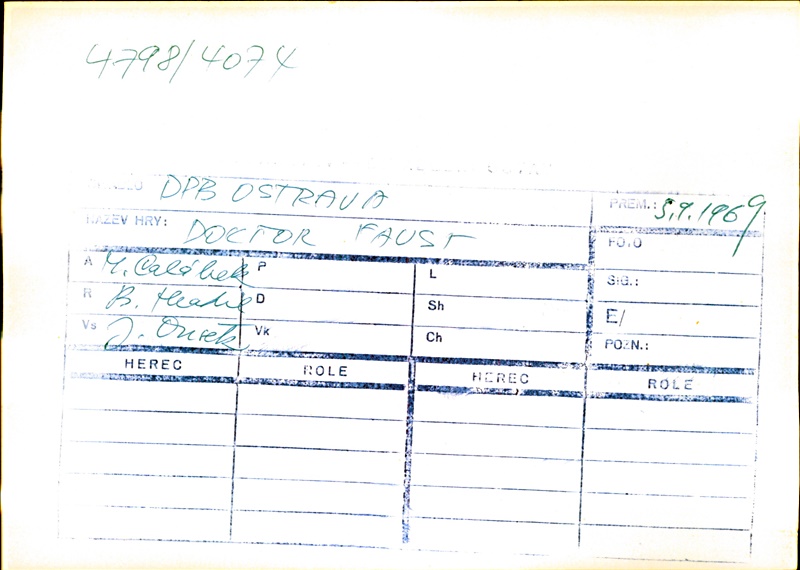 4798/4074
DPB OSTRAVA
PREM.: 5.9.1969
NÁZEV HRY: DOCTOR FAUST
FOTO
A M. Calábek P L
SIG.:
R B. D Sh
E/
Vs J. Vk Ch
POZN.:
HEREC ROLE HEREC ROLE